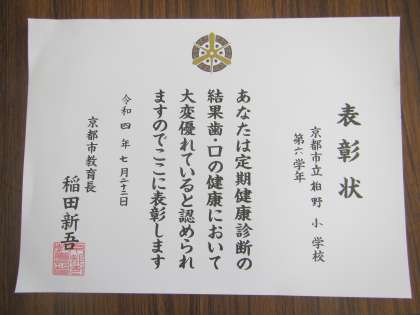 表彰状
京都市立 柏野 小 学校
第六学年
あなたは定期健康診断の
結果歯・口の健康において
大変優れていると認められ
ますのでここに表彰します
令和四年七月二十二日
京都市教育長
稲田新吾